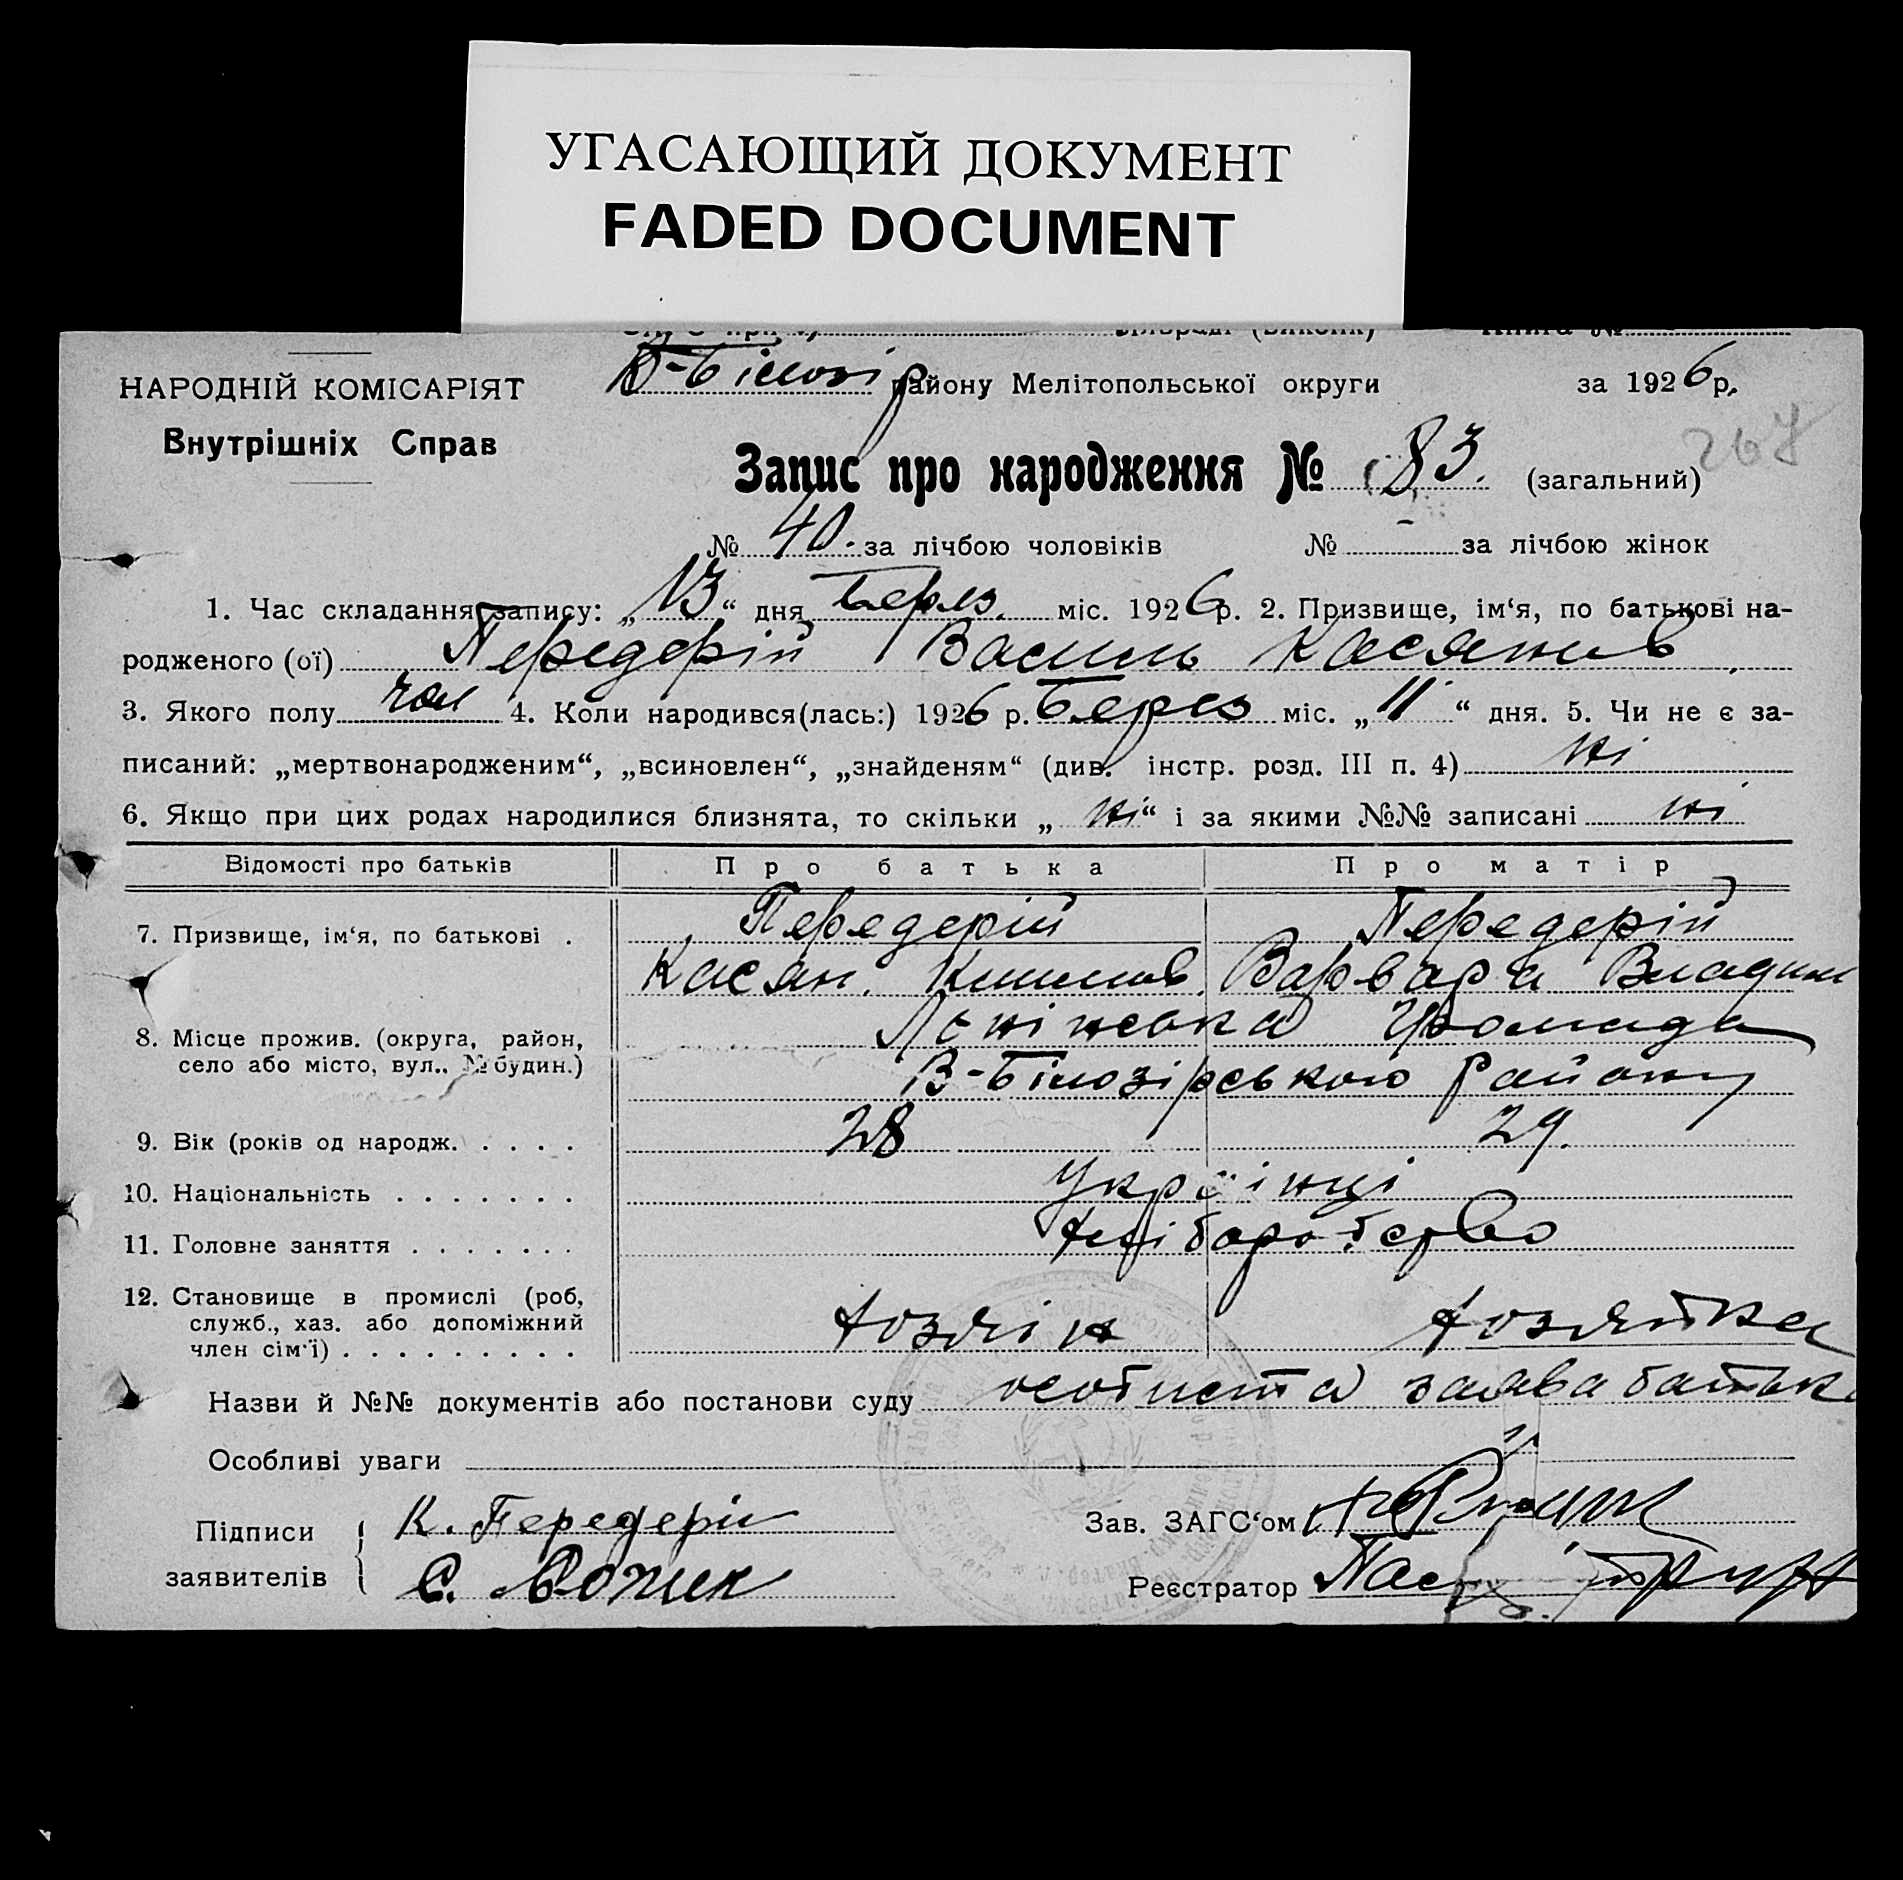 УГАСАЮЩИЙ ДОКУМЕНТ
FADED DOCUMENT
В-Білозір району Мелітопольської округи за 1926 р.
НАРОДНІЙ КОМІСАРІЯТ
Внутрішніх Справ
267
Запис про народження № 83. (загальний)
№ 40. за лічбою чоловіків № - за лічбою жінок
1. Час складання запису: „13“ дня Берез. міс. 1926 р. 2. Призвище, ім‘я, по батькові на-
родженого (ої) Передерій Василь Касянів
3. Якого полу чол 4. Коли народився(лась:) 1926 р. Берез міс. „11“ дня. 5. Чи не є за-
писаний: „мертвонародженим“, „всиновлен“, „знайденям“ (див. інстр. розд. III п. 4) ні
6. Якщо при цих родах народилися близнята, то скільки „ні“ і за якими №№ записані ні
Відомості про батьків Про батька Про матір
7. Призвище, ім‘я, по батькові . Передерій Передерій
Касян. Варвара Владим
8. Місце прожив. (округа, район, Ленінська Громада
село або місто, вул.. № будин.) В-Білозірського району
9. Вік (років од народж. . . . . 28 29.
10. Національність . . . . . . . Українці
11. Головне заняття . . . . . . . Хліборобство
12. Становище в промислі (роб, Хозяін Хозяйка
служб., хаз. або допоміжний
член сім‘ї) . . . . . . . . .
Назви й №№ документів або постанови суду особиста заява батька
Особливі уваги
Підписи К. Передерій Зав. ЗАГС‘ом
заявителів С. Реєстратор